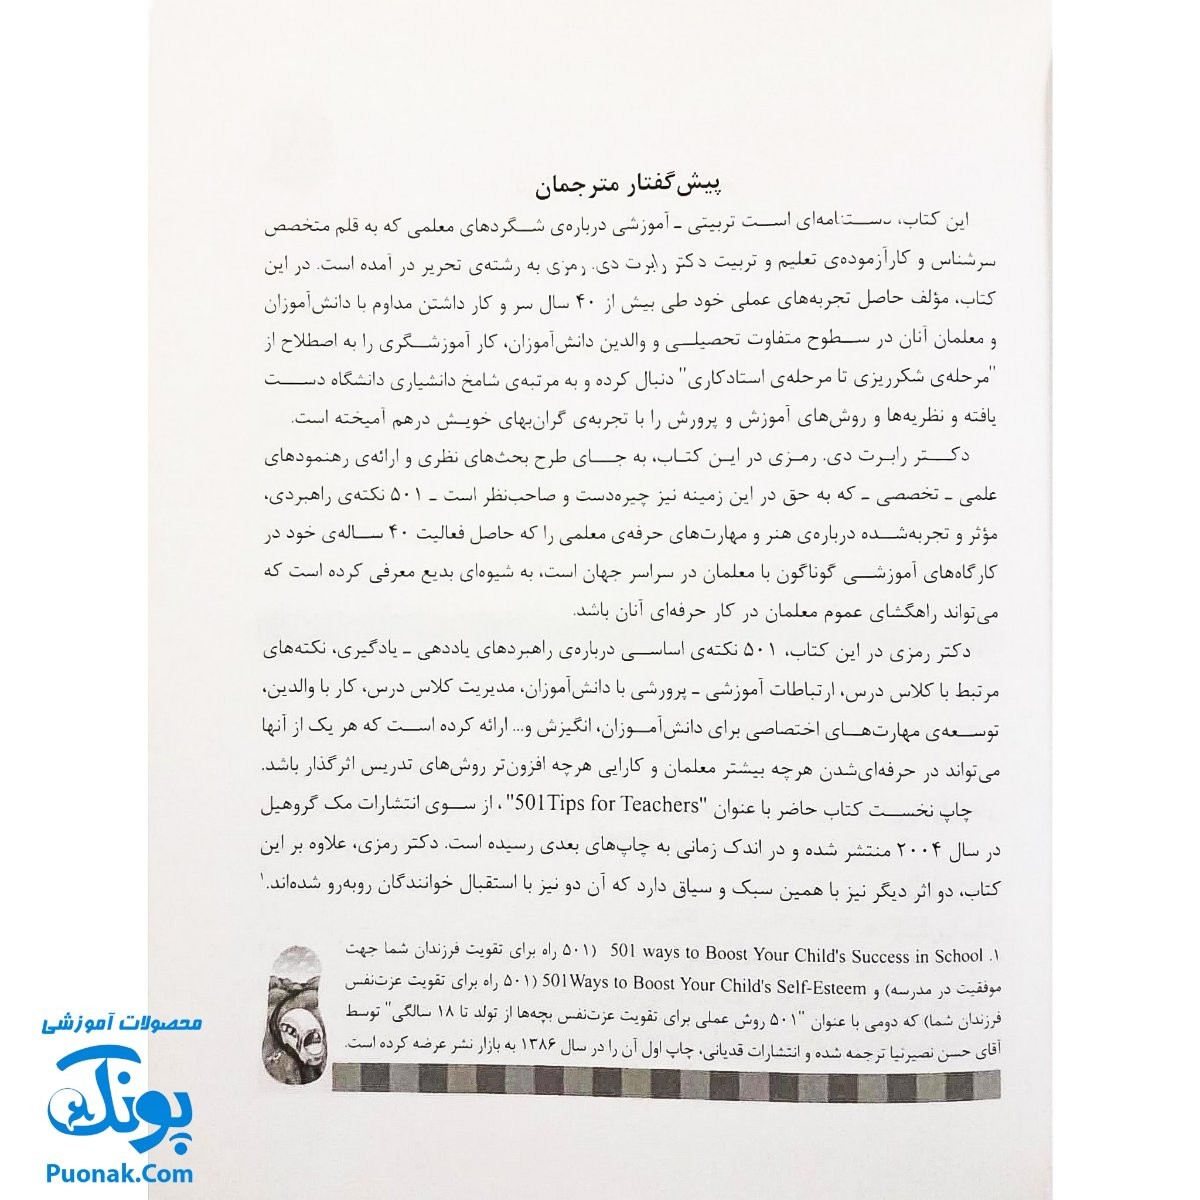 پیش‌گفتار مترجمان
این کتاب، دست‌نامه‌ای است تربیتی ـ آموزشی درباره‌ی شگردهای معلمی که به قلم متخصص
سرشناس و کارآزموده‌ی تعلیم و تربیت دکتر رابرت دی. رمزی به رشته‌ی تحریر در آمده است. در این
کتاب، مؤلف حاصل تجربه‌های عملی خود طی بیش از ۴۰ سال سر و کار داشتن مداوم با دانش‌آموزان
و معلمان آنان در سطوح متفاوت تحصیلی و والدین دانش‌آموزان، کار آموزشگری را به اصطلاح از
"مرحله‌ی شکرریزی تا مرحله‌ی استادکاری" دنبال کرده و به مرتبه‌ی شامخ دانشیاری دانشگاه دست
یافته و نظریه‌ها و روش‌های آموزش و پرورش را با تجربه‌ی گران‌بهای خویش درهم آمیخته است.
دکتر رابرت دی. رمزی در این کتاب، به جای طرح بحث‌های نظری و ارائه‌ی رهنمودهای
علمی ـ تخصصی ـ که به حق در این زمینه نیز چیره‌دست و صاحب‌نظر است ـ ۵۰۱ نکته‌ی راهبردی،
مؤثر و تجربه‌شده درباره‌ی هنر و مهارت‌های حرفه‌ی معلمی را که حاصل فعالیت ۴۰ ساله‌ی خود در
کارگاه‌های آموزشی گوناگون با معلمان در سراسر جهان است، به شیوه‌ای بدیع معرفی کرده است که
می‌تواند راهگشای عموم معلمان در کار حرفه‌ای آنان باشد.
دکتر رمزی در این کتاب، ۵۰۱ نکته‌ی اساسی درباره‌ی راهبردهای یاددهی ـ یادگیری، نکته‌های
مرتبط با کلاس درس، ارتباطات آموزشی ـ پرورشی با دانش‌آموزان، مدیریت کلاس درس، کار با والدین،
توسعه‌ی مهارت‌های اختصاصی برای دانش‌آموزان، انگیزش و... ارائه کرده است که هر یک از آنها
می‌تواند در حرفه‌ای‌شدن هرچه بیشتر معلمان و کارایی هرچه افزون‌تر روش‌های تدریس اثرگذار باشد.
چاپ نخست کتاب حاضر با عنوان "501Tips for Teachers"، از سوی انتشارات مک گروهیل
در سال ۲۰۰۴ منتشر شده و در اندک زمانی به چاپ‌های بعدی رسیده است. دکتر رمزی، علاوه بر این
کتاب، دو اثر دیگر نیز با همین سبک و سیاق دارد که آن دو نیز با استقبال خوانندگان روبه‌رو شده‌اند.۱
۱. 501 ways to Boost Your Child's Success in School (۵۰۱ راه برای تقویت فرزندان شما جهت
موفقیت در مدرسه) و 501Ways to Boost Your Child's Self-Esteem (۵۰۱ راه برای تقویت عزت‌نفس
فرزندان شما) که دومی با عنوان "۵۰۱ روش عملی برای تقویت عزت‌نفس بچه‌ها از تولد تا ۱۸ سالگی" توسط
آقای حسن نصیرنیا ترجمه شده و انتشارات قدیانی، چاپ اول آن را در سال ۱۳۸۶ به بازار نشر عرضه کرده است.
محصولات آموزشی
پونک
Puonak.Com